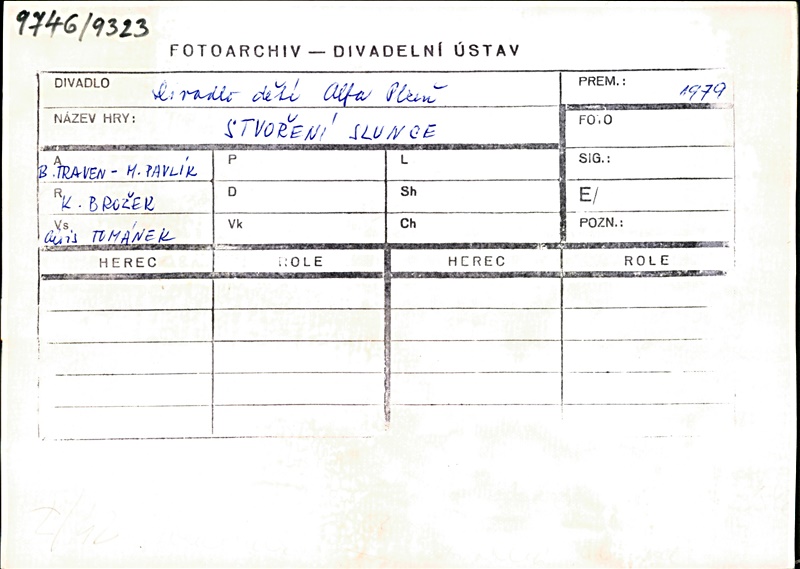 9746/9323
FOTOARCHIV — DIVADELNÍ ÚSTAV
DIVADLO Divadlo dětí Alfa Plzeň
PREM.: 1979
NÁZEV HRY: STVOŘENÍ SLUNCE
FOTO
A B. TRAVEN - M. PAVLÍK
P
L
SIG.:
R K. BROŽEK
D
Sh
E/
Vs TOMÁNEK
Vk
Ch
POZN.:
HEREC ROLE HEREC ROLE